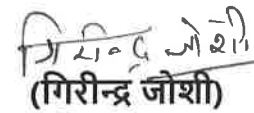 गिरीन्द्र जोशी
(गिरीन्द्र जोशी)